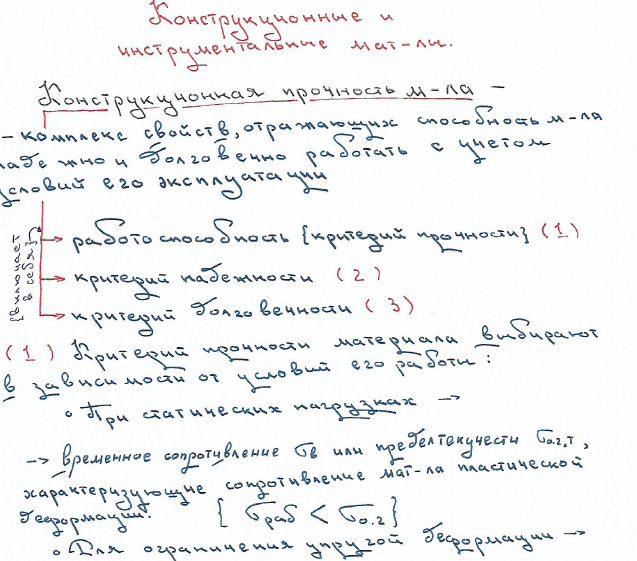 Конструкционные и
инструментальные мат-лы.
Конструкционная прочность м-ла –
– комплекс свойств, отражающих способность м-ла
надежно и долговечно работать с учетом
условий его эксплуатации
{включает
в себя}
→ работоспособность {критерий прочности} (1)
→ критерий надежности (2)
→ критерий долговечности (3)
(1) Критерий прочности материала выбирают
в зависимости от условий его работы:
∘ При статических нагрузках →
→ временное сопротивление σв или предел текучести σ0.2,т,
характеризующие сопротивление мат-ла пластической
деформации. {σраб < σ0.2}
∘ Для ограничения упругой деформации →